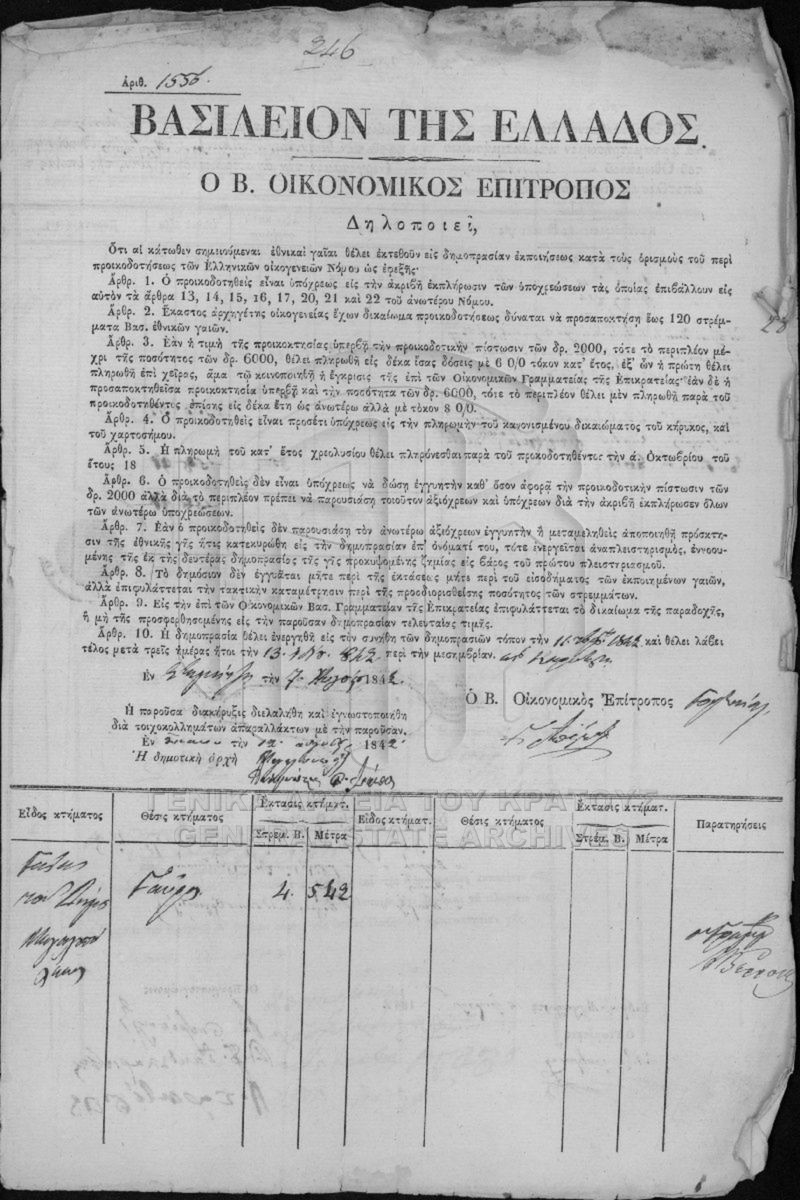 246
Ἀριθ. 1556.
ΒΑΣΙΛΕΙΟΝ ΤΗΣ ΕΛΛΑΔΟΣ.
Ο Β. ΟΙΚΟΝΟΜΙΚΟΣ ΕΠΙΤΡΟΠΟΣ
Δηλοποιεῖ,
Ὅτι αἱ κάτωθεν σημειούμεναι ἐθνικαὶ γαῖαι θέλει ἐκτεθοῦν εἰς δημοπρασίαν ἐκποιήσεως κατὰ τοὺς ὁρισμοὺς τοῦ περὶ
προικοδοτήσεως τῶν Ἑλληνικῶν οἰκογενειῶν Νόμου ὡς ἐφεξῆς·
Ἄρθρ. 1. Ὁ προικοδοτηθεὶς εἶναι ὑπόχρεως εἰς τὴν ἀκριβῆ ἐκπλήρωσιν τῶν ὑποχρεώσεων τὰς ὁποίας ἐπιβάλλουν εἰς
αὐτὸν τὰ ἄρθρα 13, 14, 15, 16, 17, 20, 21 καὶ 22 τοῦ ἀνωτέρω Νόμου.
Ἄρθρ. 2. Ἕκαστος ἀρχηγέτης οἰκογενείας ἔχων δικαίωμα προικοδοτήσεως δύναται νὰ προσαποκτήσῃ ἕως 120 στρέμ-
ματα Βασ. ἐθνικῶν γαιῶν.
Ἄρθρ. 3. Ἐὰν ἡ τιμὴ τῆς προικοκτησίας ὑπερβῇ τὴν προικοδοτικὴν πίστωσιν τῶν δρ. 2000, τότε τὸ περιπλέον μέ-
χρι τῆς ποσότητος τῶν δρ. 6000, θέλει πληρωθῆ εἰς δέκα ἴσας δόσεις μὲ 6 0/0 τόκον κατ' ἔτος, ἐξ' ὧν ἡ πρώτη θέλει
πληρωθῆ ἐπὶ χεῖρας, ἅμα τῷ κοινοποιηθῇ ἡ ἔγκρισις τῆς ἐπὶ τῶν Οἰκονομικῶν Γραμματείας τῆς Ἐπικρατείας· ἐὰν δὲ ἡ
προσαποκτηθεῖσα προικοκτησία ὑπερβῇ καὶ τὴν ποσότητα τῶν δρ. 6000, τότε τὸ περιπλέον θέλει μὲν πληρωθῆ παρὰ τοῦ
προικοδοτηθέντος ἐπίσης εἰς δέκα ἔτη ὡς ἀνωτέρω ἀλλὰ μὲ τόκον 8 0/0.
Ἄρθρ. 4. Ὁ προικοδοτηθεὶς εἶναι προσέτι ὑπόχρεως εἰς τὴν πληρωμὴν τοῦ κανονισμένου δικαιώματος τοῦ κήρυκος, καὶ
τοῦ χαρτοσήμου.
Ἄρθρ. 5. Ἡ πληρωμὴ τοῦ κατ' ἔτος χρεολυσίου θέλει πληρόνεσθαι παρὰ τοῦ προικοδοτηθέντος τὴν ά. Ὀκτωβρίου τοῦ
ἔτους 18
Ἄρθρ. 6. Ὁ προικοδοτηθεὶς δὲν εἶναι ὑπόχρεως νὰ δώσῃ ἐγγυητὴν καθ' ὅσον ἀφορᾷ τὴν προικοδοτικὴν πίστωσιν τῶν
δρ. 2000 ἀλλὰ διὰ τὸ περιπλέον πρέπει νὰ παρουσιάσῃ τοιοῦτον ἀξιόχρεων καὶ ὑπόχρεων διὰ τὴν ἀκριβῆ ἐκπλήρωσιν ὅλων
τῶν ἀνωτέρω ὑποχρεώσεων.
Ἄρθρ. 7. Ἐὰν ὁ προικοδοτηθεὶς δὲν παρουσιάσῃ τὸν ἀνωτέρω ἀξιόχρεων ἐγγυητὴν ἢ μεταμεληθεὶς ἀποποιηθῇ πρόσκτη-
σιν τῆς ἐθνικῆς γῆς ἥτις κατεκυρώθη εἰς τὴν δημοπρασίαν ἐπ' ὀνόματί του, τότε ἐνεργεῖται ἀναπλειστηριασμὸς, ἐννοου-
μένης τῆς ἐκ τῆς δευτέρας δημοπρασίας τῆς γῆς προκυψομένης ζημίας εἰς βάρος τοῦ πρώτου πλειστηριασμοῦ.
Ἄρθρ. 8. Τὸ δημόσιον δὲν ἐγγυᾶται μήτε περὶ τῆς ἐκτάσεως μήτε περὶ τοῦ εἰσοδήματος τῶν ἐκποιημένων γαιῶν,
ἀλλὰ ἐπιφυλάττεται τὴν τακτικὴν καταμέτρησιν περὶ τῆς προσδιορισθείσης ποσότητος τῶν στρεμμάτων.
Ἄρθρ. 9. Εἰς τὴν ἐπὶ τῶν Οἰκονομικῶν Βασ. Γραμματείαν τῆς Ἐπικρατείας ἐπιφυλάττεται τὸ δικαίωμα τῆς παραδοχῆς,
ἢ μὴ τῆς προσφερθησομένης εἰς τὴν παροῦσαν δημοπρασίαν τελευταίας τιμῆς.
Ἄρθρ. 10. Ἡ δημοπρασία θέλει ἐνεργηθῆ εἰς τὸν συνήθη τῶν δημοπρασιῶν τόπον τὴν 11 1842 καὶ θέλει λάβει
τέλος μετὰ τρεῖς ἡμέρας ἤτοι τὴν 13 1842 περὶ τὴν μεσημβρίαν.
Ἐν τὴν 7 1842.
Ὁ Β. Οἰκονομικὸς Ἐπίτροπος
Ἡ παροῦσα διακήρυξις διελαλήθη καὶ ἐγνωστοποιήθη
διὰ τοιχοκολλημάτων ἀπαραλλάκτων μὲ τὴν παροῦσαν.
Ἐν τὴν 12 1842
Ἡ δημοτικὴ ἀρχὴ
ΓΕΝΙΚΑ ΑΡΧΕΙΑ ΤΟΥ ΚΡΑΤΟΥΣ
GENERAL STATE ARCHIVES
Εἶδος κτήματος Θέσις κτήματος Ἔκτασις κτήματ. Εἶδος κτήματ. Θέσις κτήματος Ἔκτασις κτήματ. Παρατηρήσεις
Στρέμ. Β. Μέτρα Στρέμ. Β. Μέτρα
4. 542